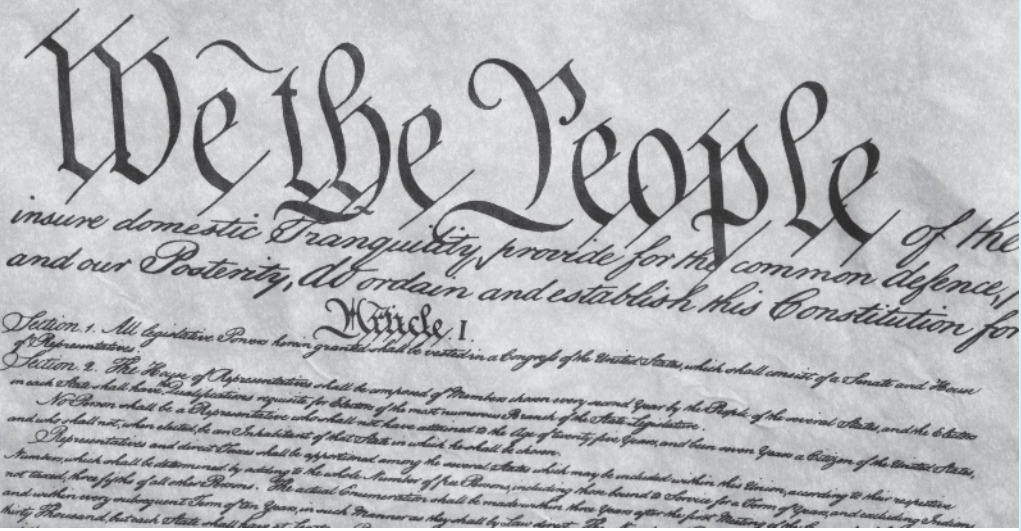 We the People of the
insure domestic Tranquility, provide for the common defence,
and our Posterity, do ordain and establish this Constitution for
Article I.
Section. 1. All legislative Powers herein granted shall be vested in a Congress of the United States, which shall consist of a Senate and House
of Representatives.
Section. 2. The House of Representatives shall be composed of Members chosen every second Year by the People of the several States, and the Electors
in each State shall have the Qualifications requisite for Electors of the most numerous Branch of the State Legislature.
No Person shall be a Representative who shall not have attained to the Age of twenty five Years, and been seven Years a Citizen of the United States,
and who shall not, when elected, be an Inhabitant of that State in which he shall be chosen.
Representatives and direct Taxes shall be apportioned among the several States which may be included within this Union, according to their respective
Numbers, which shall be determined by adding to the whole Number of free Persons, including those bound to Service for a Term of Years, and excluding
not taxed, three fifths of all other Persons. The actual Enumeration shall be made within three Years after the first Meeting of
and within every subsequent Term of ten Years, in such Manner as they shall by Law direct. The
thirty Thousand, but each State shall have at